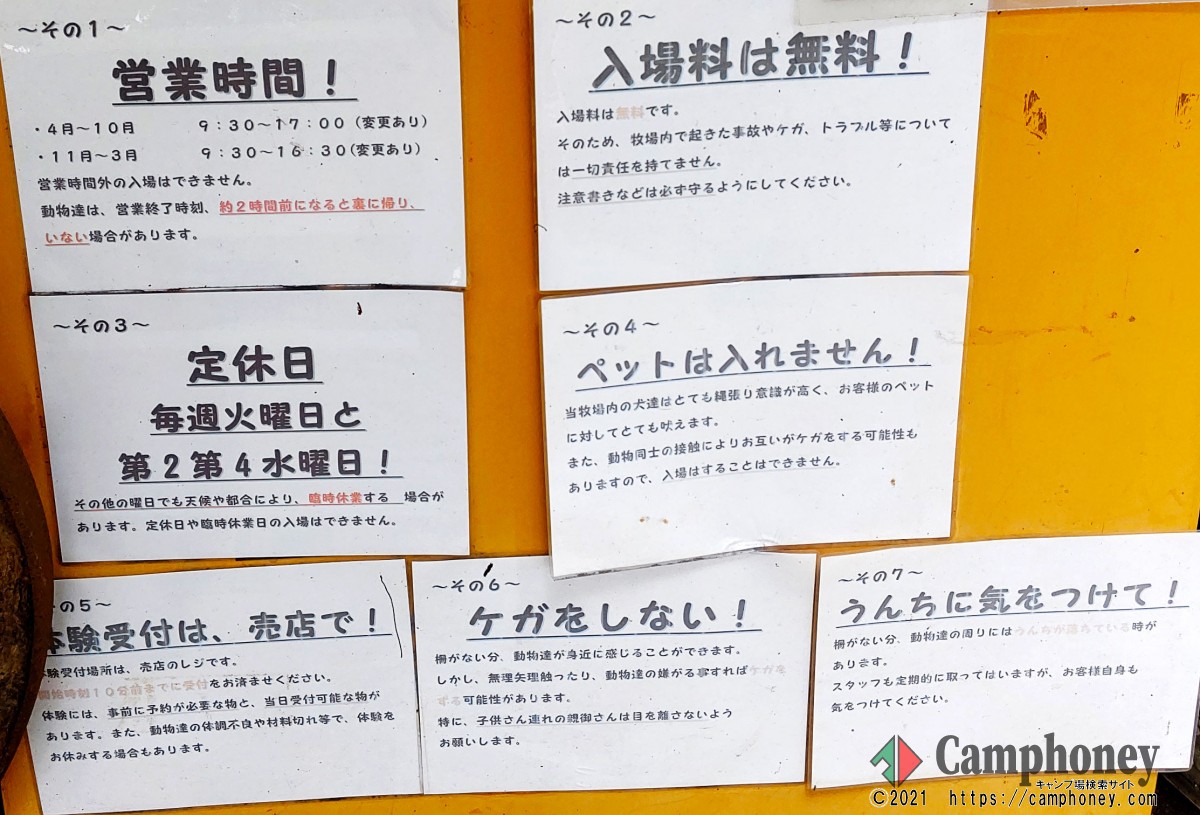 ～その１～
営業時間！
・４月～１０月　９：３０～１７：００（変更あり）
・１１月～３月　９：３０～１６：３０(変更あり)
営業時間外の入場はできません。
動物達は、営業終了時刻、約２時間前になると裏に帰り、
いない場合があります。
～その２～
入場料は無料！
入場料は無料です。
そのため、牧場内で起きた事故やケガ、トラブル等について
は一切責任を持てません。
注意書きなどは必ず守るようにしてください。
～その３～
定休日
毎週火曜日と
第２第４水曜日！
その他の曜日でも天候や都合により、臨時休業する　場合が
あります。定休日や臨時休業日の入場はできません。
～その４～
ペットは入れません！
当牧場内の犬達はとても縄張り意識が高く、お客様のペット
に対してとても吠えます。
また、動物同士の接触によりお互いがケガをする可能性も
ありますので、入場はすることはできません。
その５～
体験受付は、売店で！
体験受付場所は、売店のレジです。
開始時刻１０分前までに受付をお済ませください。
体験には、事前に予約が必要な物と、当日受付可能な物が
あります。また、動物達の体調不良や材料切れ等で、体験を
お休みする場合もあります。
～その６～
ケガをしない！
柵がない分、動物達が身近に感じることができます。
しかし、無理矢理触ったり、動物達の嫌がる事すればケガを
する可能性があります。
特に、子供さん連れの親御さんは目を離さないよう
お願いします。
～その７～
うんちに気をつけて！
柵がない分、動物達の周りにはうんちが落ちている時が
あります。
スタッフも定期的に取ってはいますが、お客様自身も
気をつけてください。
Camphoney
キャンプ場検索サイト
©2021 https://camphoney.com